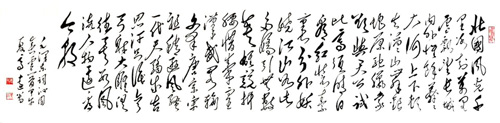 北國風光千
里冰封萬里
雪飄望長城
内外惟餘莽莽
大河上下頓
失滔滔山舞銀
蛇原馳蠟象欲
與天公試
比高須晴日
看紅裝素
裹分外妖
嬈江山如此
多嬌引無數
英雄競折
腰惜秦皇
漢武略輸文
采唐宗宋祖
稍遜風騷一
代天驕成吉
思汗只識彎
弓射大雕俱
往矣數風
流人物還看
今朝
毛澤東詞沁園
春雪